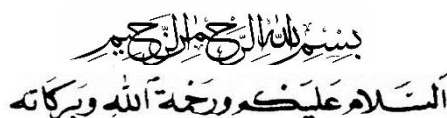 بِسْمِ اللهِ الرَّحْمٰنِ الرَّحِيْمِ
اَلسَّلَامُ عَلَيْكُمْ وَرَحْمَةُ اللهِ وَبَرَكَاتُه